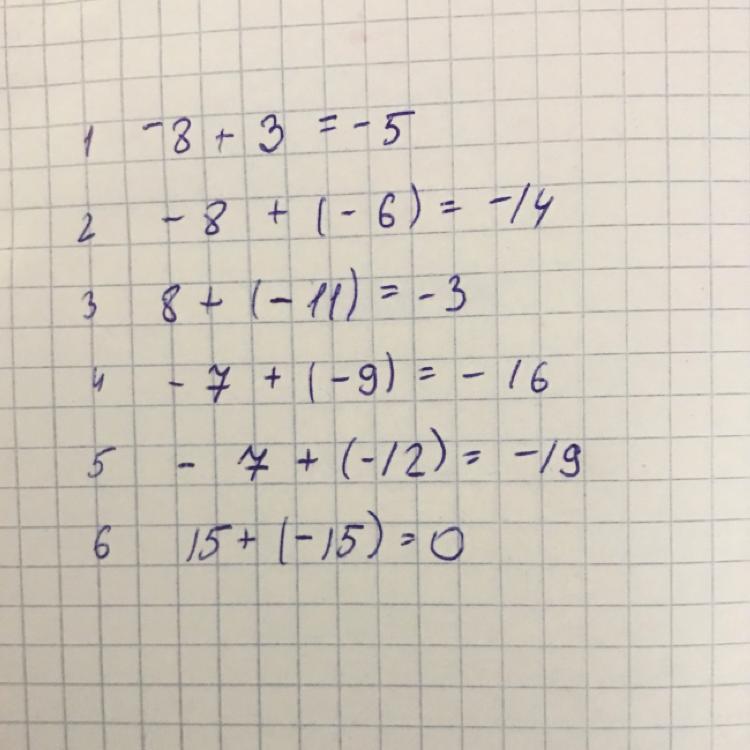 1 -8 + 3 = -5
2 -8 + (-6) = -14
3 8 + (-11) = -3
4 -7 + (-9) = -16
5 -7 + (-12) = -19
6 15 + (-15) = 0